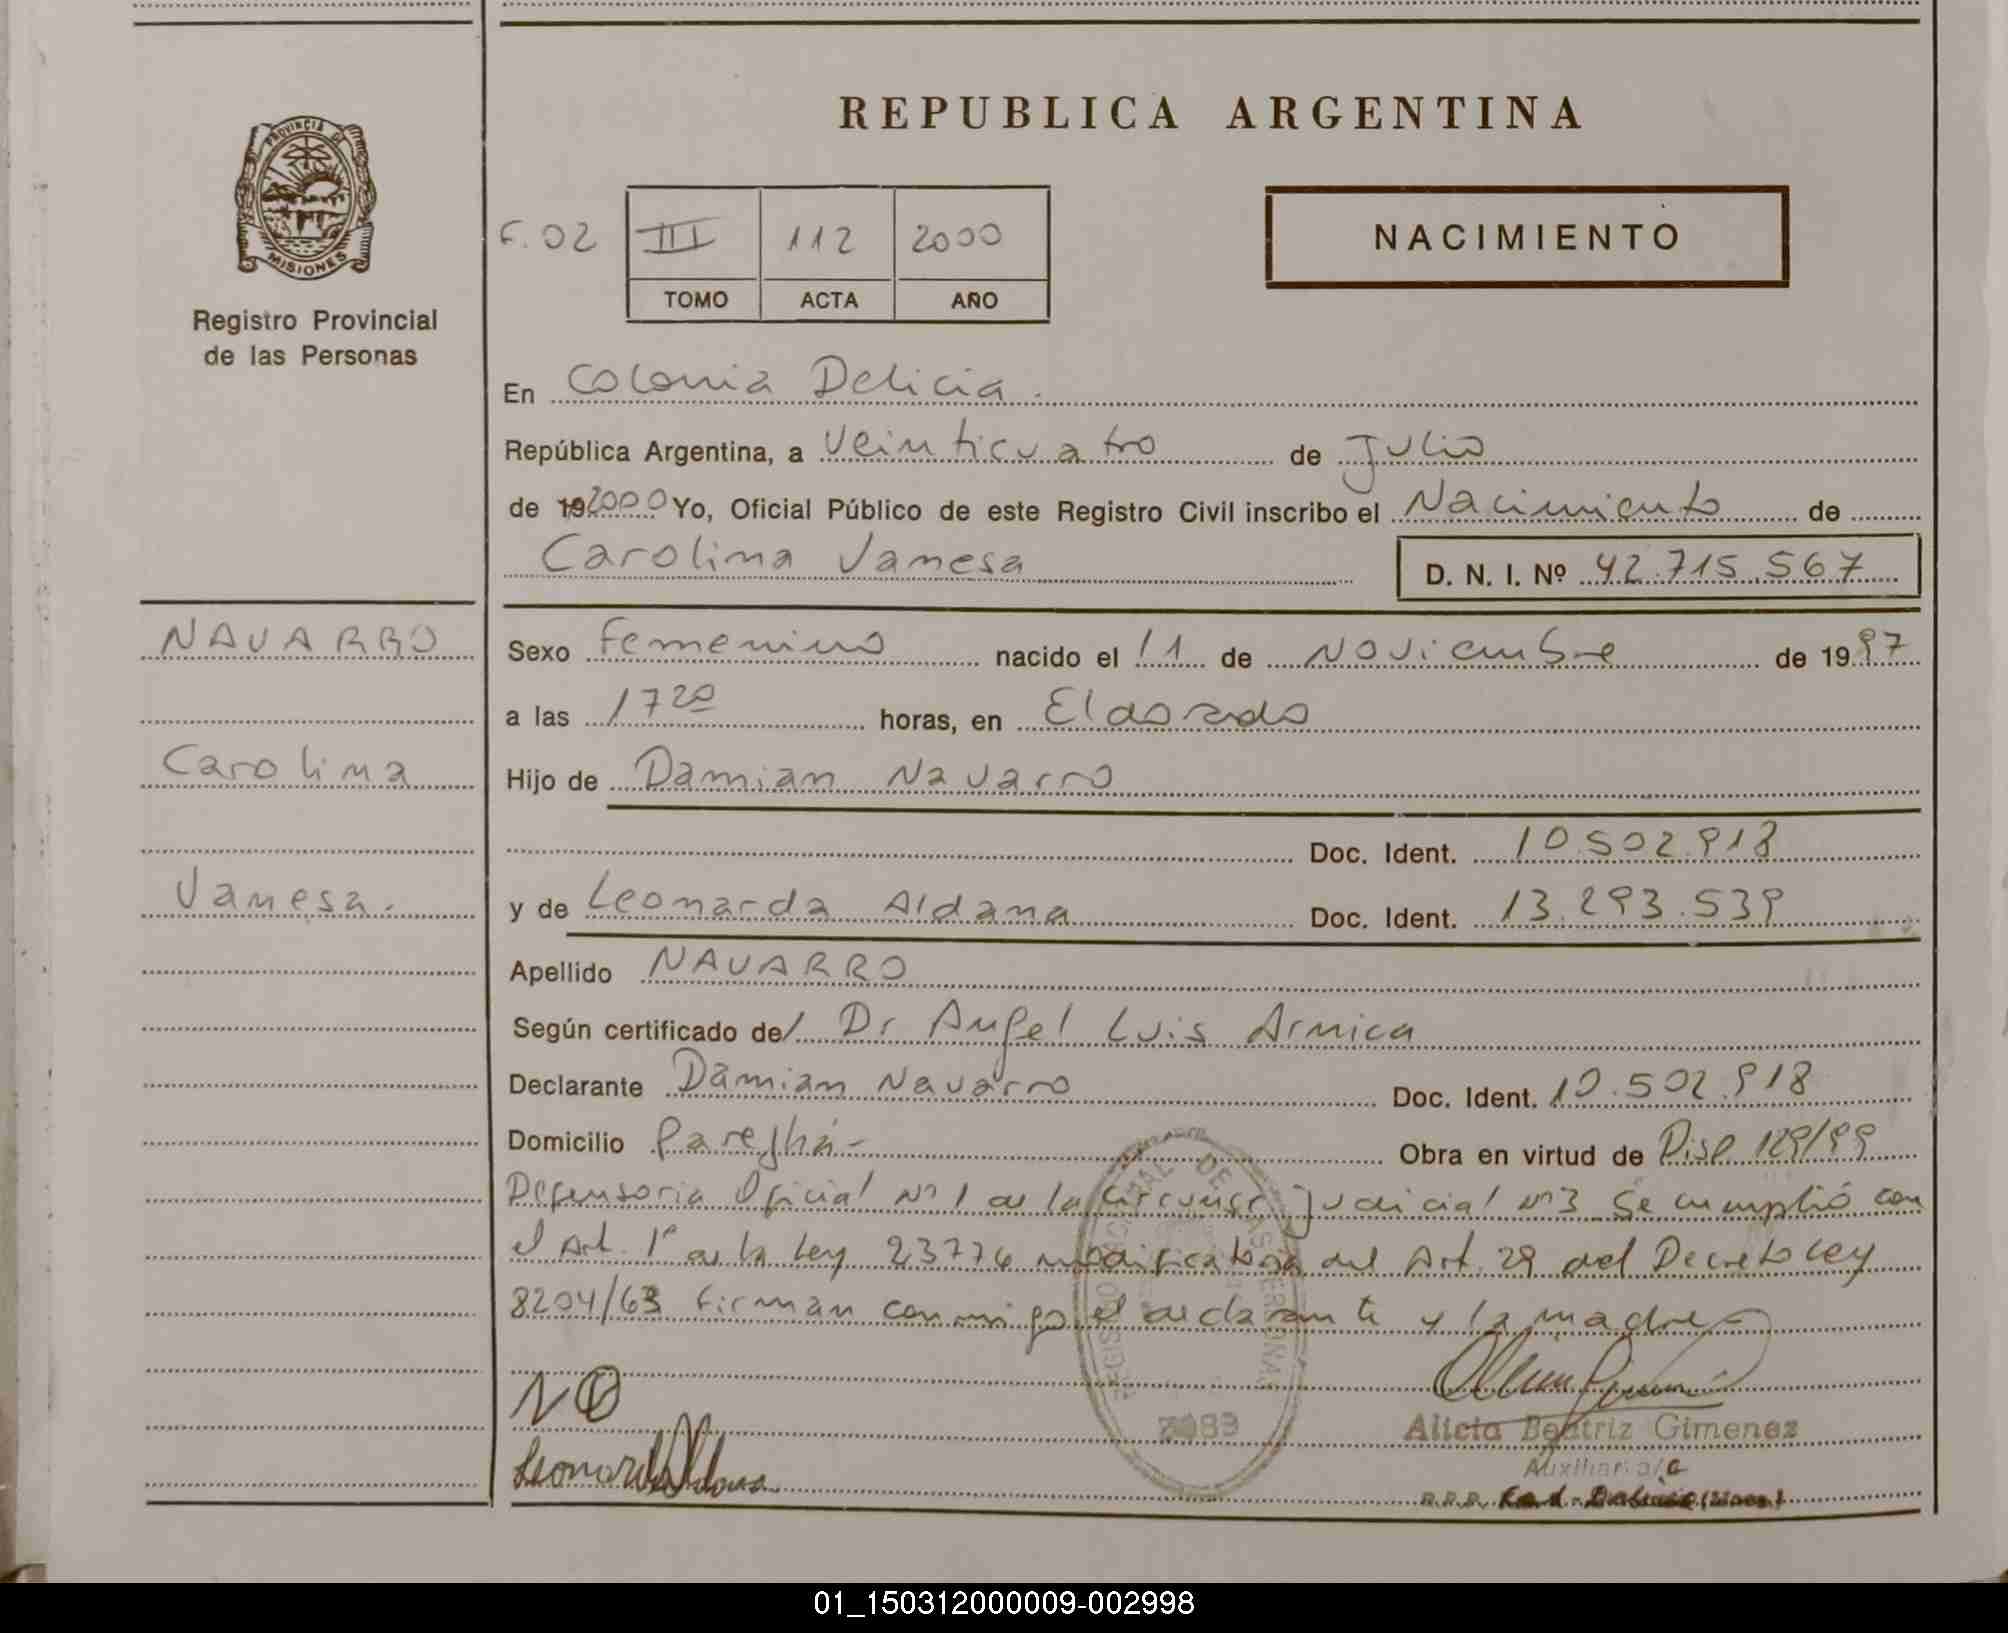 REPUBLICA ARGENTINA
PROVINCIA DE
MISIONES
Registro Provincial
de las Personas
F. 02 III 112 2000
TOMO ACTA AÑO
NACIMIENTO
En Colonia Delicia.
República Argentina, a veinticuatro de Julio
de 19 2000 Yo, Oficial Público de este Registro Civil inscribo el Nacimiento de
Carolina Vanesa D. N. I. Nº 42.715.567
NAVARRO
Carolina
Vanesa.
Sexo Femenino nacido el 11 de Noviembre de 1997
a las 17 20 horas, en Eldorado
Hijo de Damian Navarro
Doc. Ident. 10.502.918
y de Leonarda Aldana Doc. Ident. 13.293.539
Apellido NAVARRO
Según certificado de/ Dr Angel Luis Arnica
Declarante Damian Navarro Doc. Ident. 10.502.918
Domicilio Obra en virtud de Disp 129/99
Defensoria Oficial Nº 1 de la Circunsc judicial Nº3 Se cumplió con
el Art. 1º de la Ley 23776 modificatoria del Art. 29 del Decreto Ley
8204/63 Firman conmigo el declarante y la madre
Leonarda Aldana
REGISTRO DE LAS PERSONAS
Alicia Beatriz Gimenez
Auxiliar a/c
R.P.P.
01_150312000009-002998